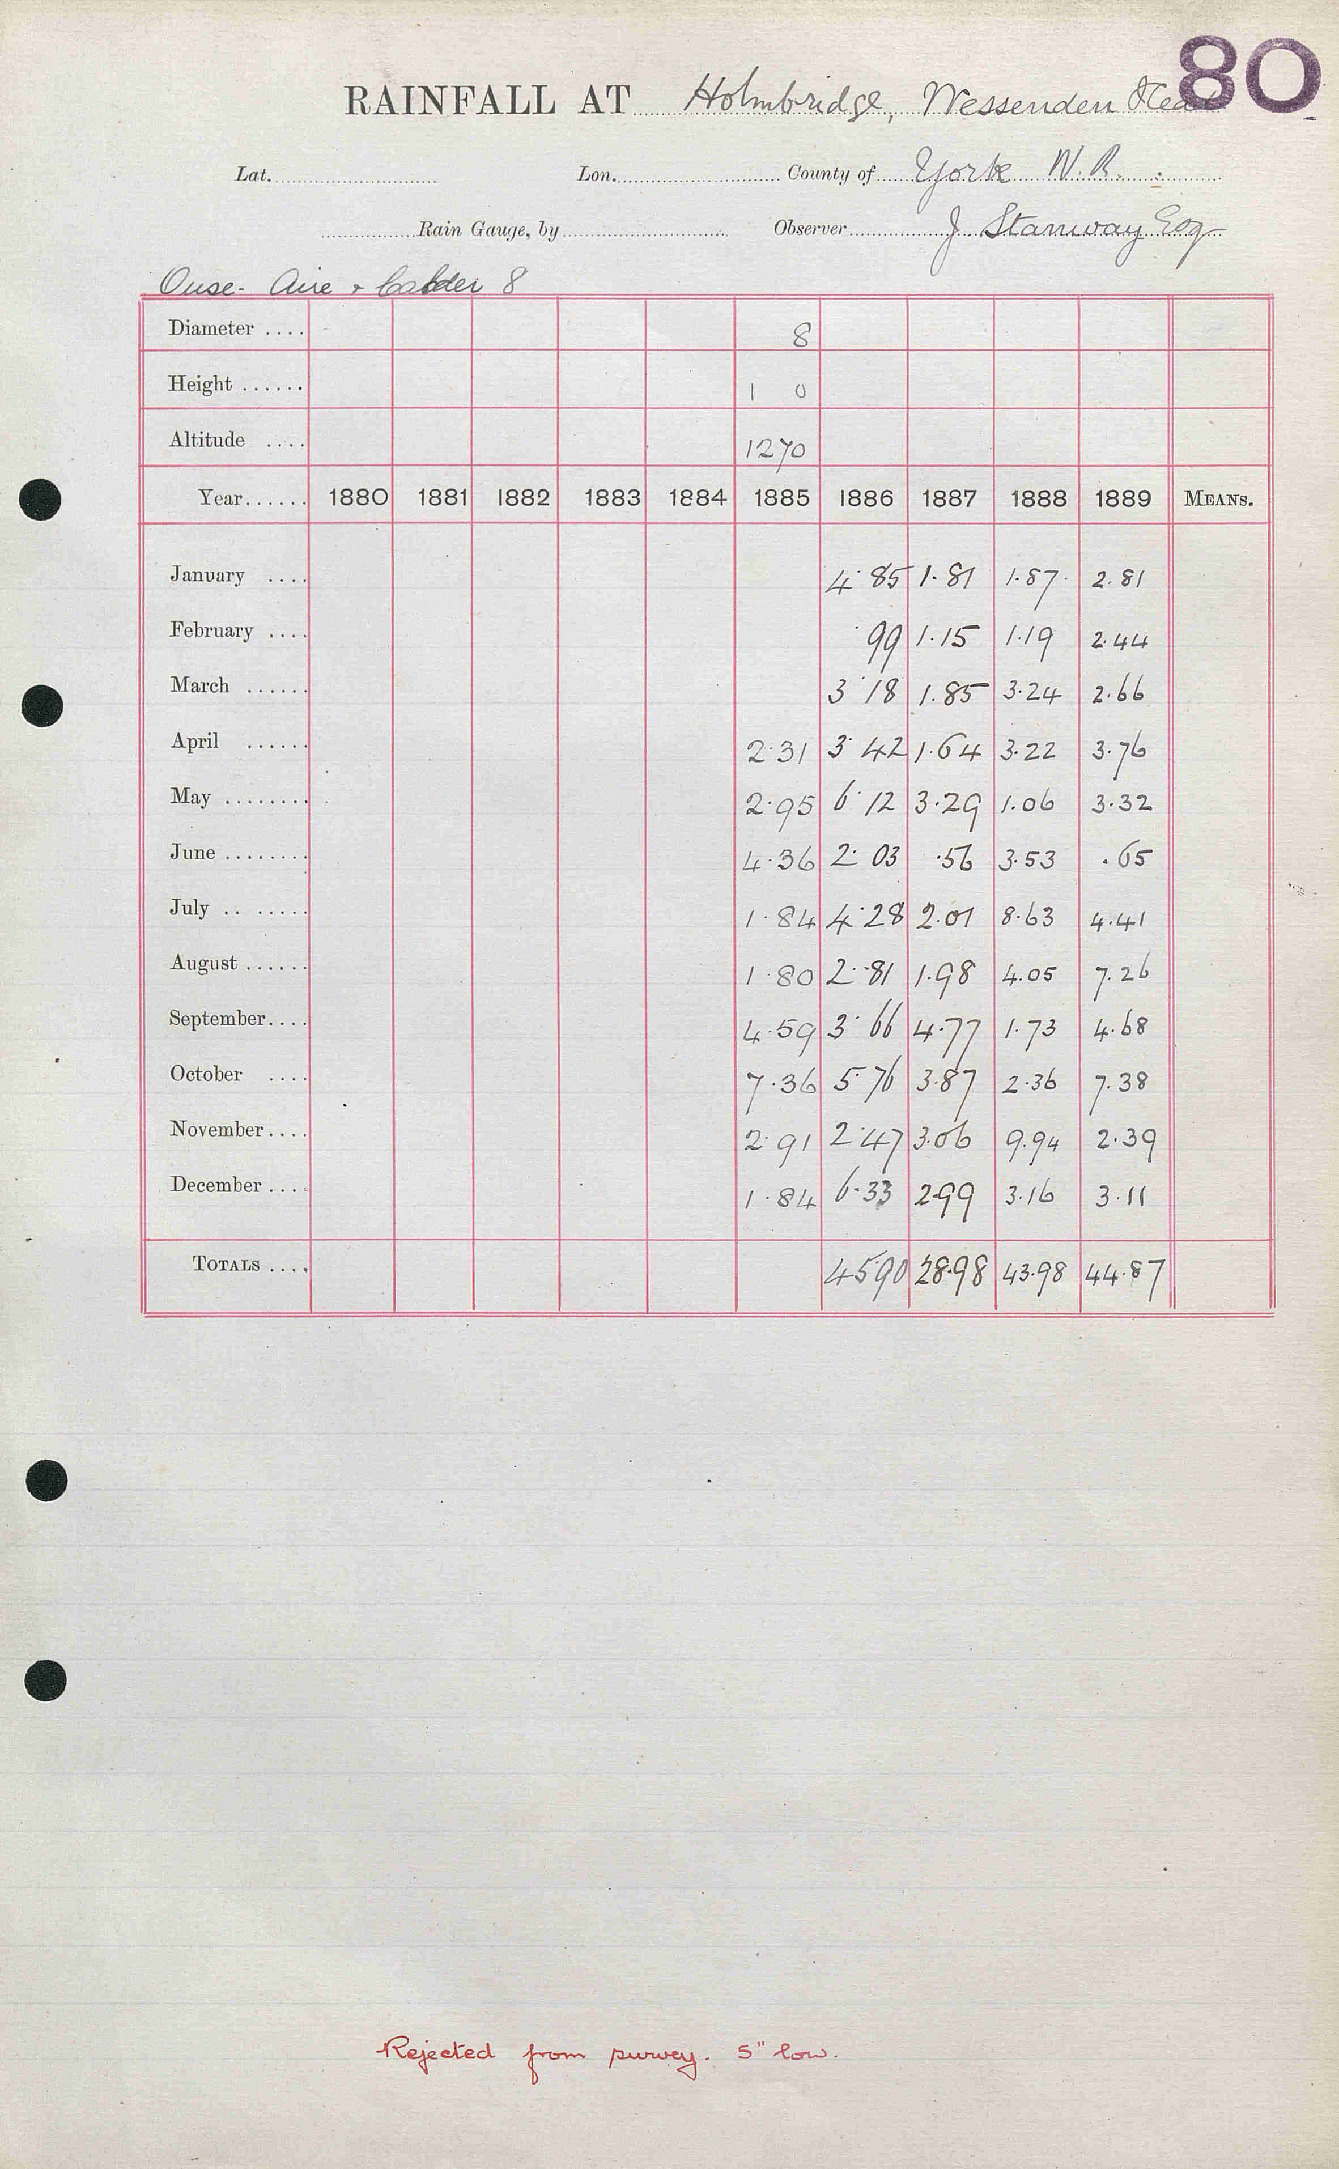 80
RAINFALL AT Holmbridge, Wessenden Head
Lat. Lon. County of York W. R.
Rain Gauge, by Observer J. Stanway Esq
Ouse - Aire & Calder 8
Diameter .... 8
Height ...... 1 0
Altitude .... 1270
Year...... 1880 1881 1882 1883 1884 1885 1886 1887 1888 1889 MEANS.
January .... 4.85 1.81 1.87 2.81
February .... .99 1.15 1.19 2.44
March ...... 3.18 1.85 3.24 2.66
April ...... 2.31 3.42 1.64 3.22 3.76
May ........ 2.95 6.12 3.29 1.06 3.32
June ........ 4.36 2.03 .56 3.53 .65
July .. ...... 1.84 4.28 2.01 8.63 4.41
August ...... 1.80 2.81 1.98 4.05 7.26
September.... 4.59 3.66 4.77 1.73 4.68
October .... 7.36 5.76 3.87 2.36 7.38
November.... 2.91 2.47 3.06 9.94 2.39
December .... 1.84 6.33 2.99 3.16 3.11
TOTALS .... 45.90 28.98 43.98 44.87
Rejected from survey. 5" low.